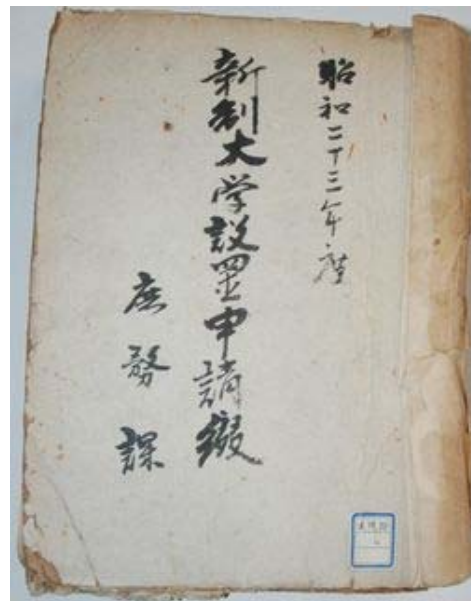 昭和二十三年度
新制大学設置申請綴
庶務課